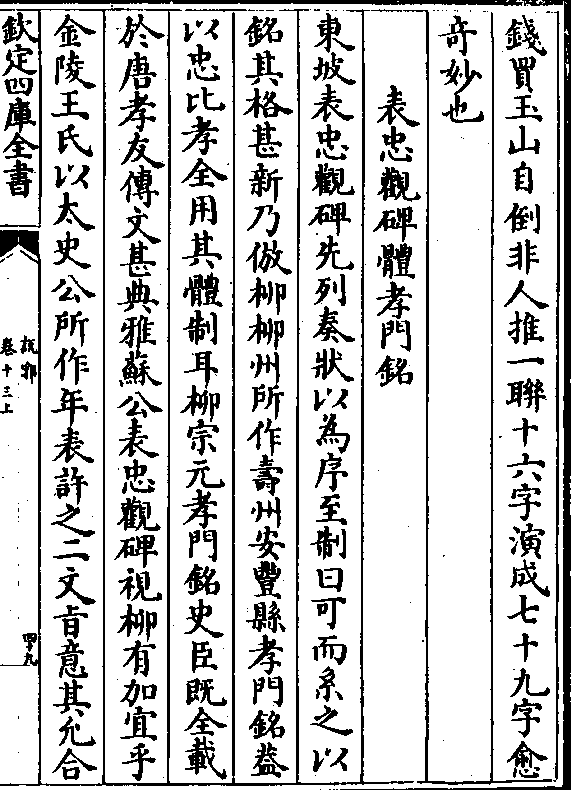 錢買玉山自倒非人推一聯十六字演成七十九字愈
竒妙也
表忠觀碑體孝門銘
東坡表忠觀碑先列奏狀以為序至制曰可而系之以
銘其格甚新乃倣柳柳州所作壽州安豐縣孝門銘葢
以忠比孝全用其體制耳柳宗元孝門銘史臣既全載
於唐孝友傳文甚典雅蘇公表忠觀碑視柳有加宜乎
金陵王氏以太史公所作年表許之二文旨意其允合
欽定四庫全書
說郛
卷十三上
四十九